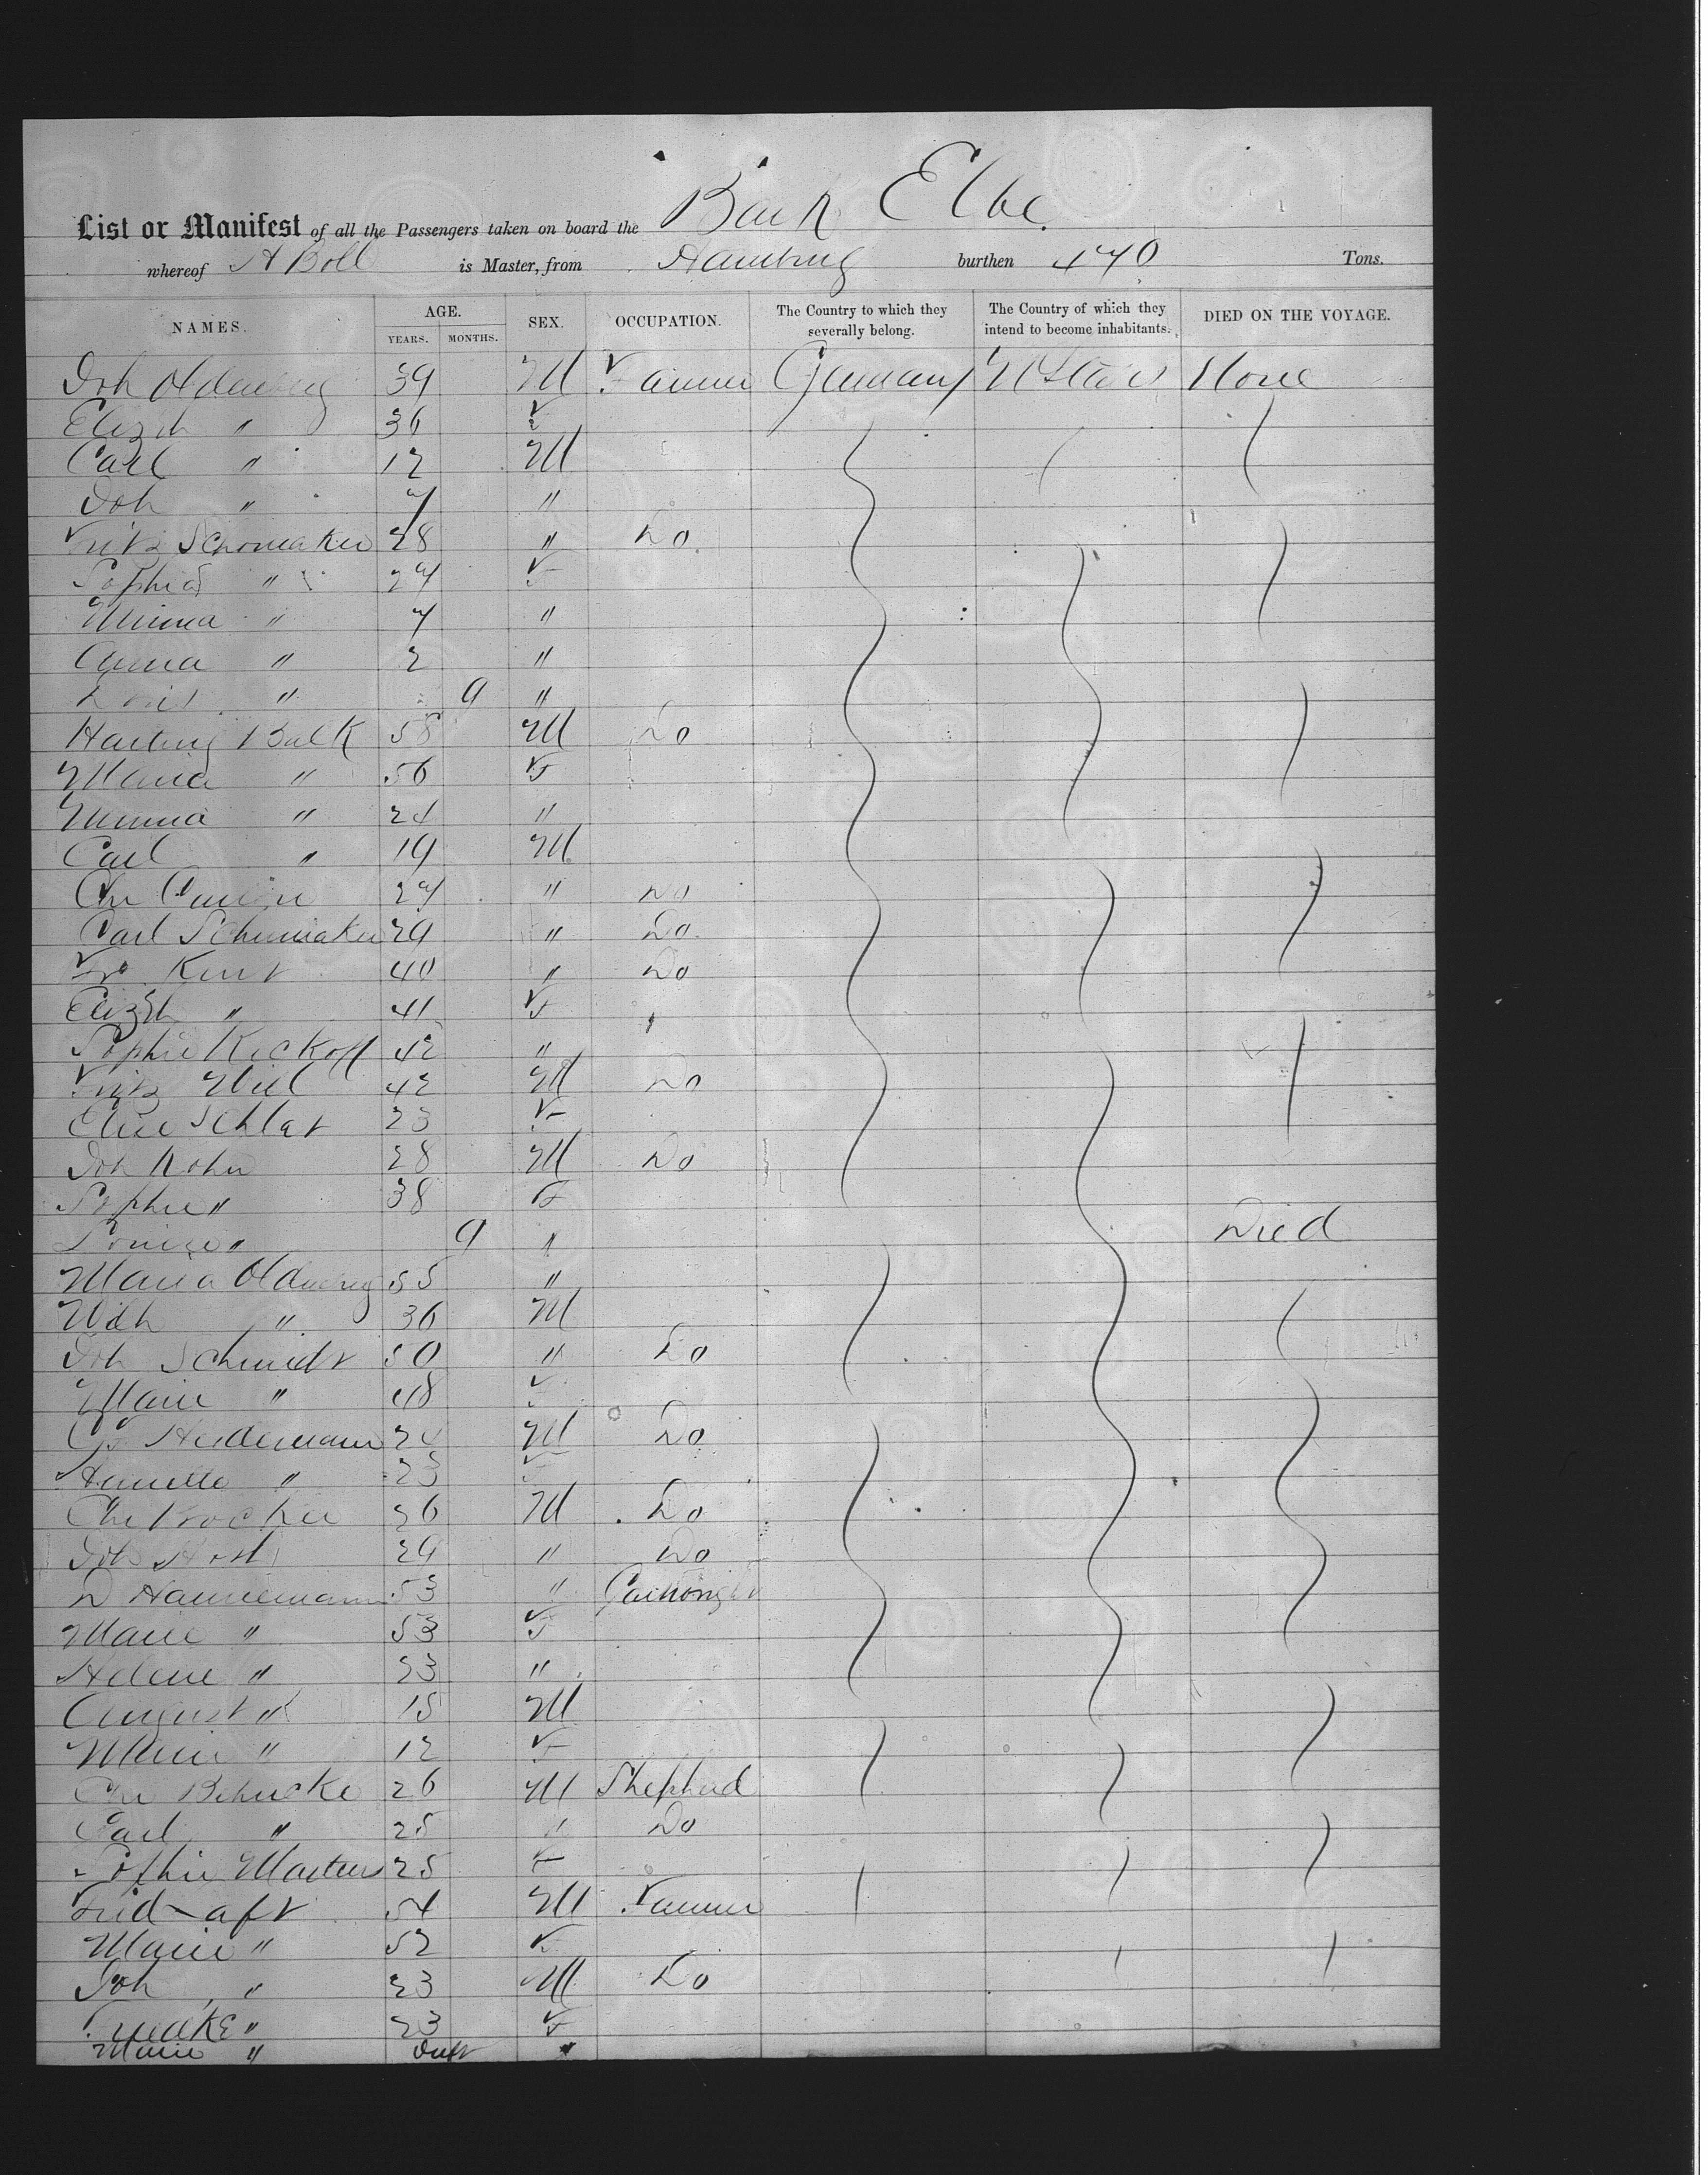 Bark Elbe
List or Manifest of all the Passengers taken on board the
whereof A Boll is Master, from Hamburg burthen 470 Tons.
NAMES. AGE. YEARS. MONTHS. SEX. OCCUPATION. The Country to which they severally belong. The Country of which they intend to become inhabitants. DIED ON THE VOYAGE.
Joh Oldenburg 39 M Farmer Germany U States None
Elizth " 36 F
Carl " 12 M
Joh " 7 "
Fritz Schomaker 28 " Do
Sophia " 27 F
Minna " 7 "
Anna " 2 "
" 9 "
Hartwig Balk 58 M Do
Maria " 56 F
Minna " 24 "
Carl " 19 M
Chr 27 " Do
Carl Schumaker 29 " Do
Kurt 40 " Do
Elizth " 41 F
Sophie Kickoff 42 "
Fritz 42 M Do
Schlar 23 F
Joh Rohn 28 M Do
Sophie " 38 F
Louise " 9 " Died
Maria Oldenburg 55 "
Wilh " 36 M
Joh Schmidt 50 " Do
Marie " 48 F
Heidemann 24 M Do
" 23 F
Chr 26 M Do
Joh 29 " Do
D Hannemann 53 "
Marie " 53 F
Helene " 23 "
August " 15 M
Marie " 12 F
Chr Behncke 26 M Shepherd
Carl " 25 " Do
Sophie Martens 25 F
54 M Farmer
Marie " 52 F
Joh " 23 M Do
" 23 F
Marie " "